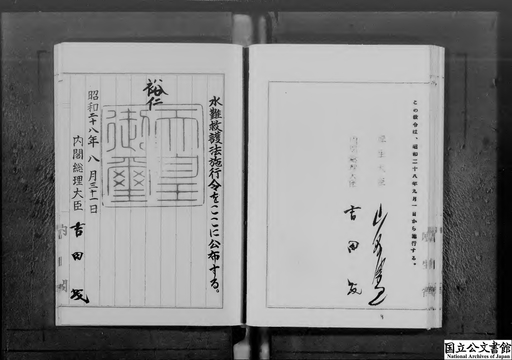 この政令は、昭和二十八年九月一日から施行する。
厚生大臣
内閣総理大臣
吉田茂
水難救護法施行令をここに公布する。
裕仁
天皇御璽
昭和二十八年八月三十一日
内閣総理大臣 吉田茂
国立公文書館
National Archives of Japan